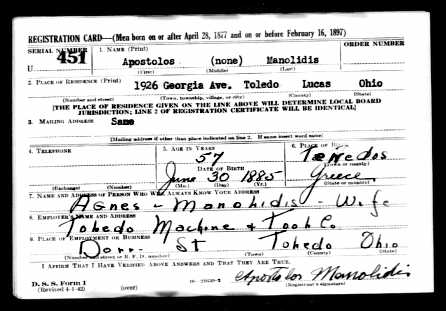 REGISTRATION CARD—(Men born on or after April 28, 1877 and on or before February 16, 1897)
SERIAL NUMBER 1. NAME (Print) ORDER NUMBER
U 451 Apostolos (none) Manolidis
(First) (Middle) (Last)
2. PLACE OF RESIDENCE (Print)
1926 Georgia Ave. Toledo Lucas Ohio
(Number and street) (Town, township, village, or city) (County) (State)
[THE PLACE OF RESIDENCE GIVEN ON THE LINE ABOVE WILL DETERMINE LOCAL BOARD
JURISDICTION; LINE 2 OF REGISTRATION CERTIFICATE WILL BE IDENTICAL]
3. MAILING ADDRESS
Same
[Mailing address if other than place indicated on line 2. If same insert word same]
4. TELEPHONE 5. AGE IN YEARS 6. PLACE OF BIRTH
57 Tenedos
DATE OF BIRTH (Town or county)
June 30 1885 Greece
(Exchange) (Number) (Mo.) (Day) (Yr.) (State or country)
7. NAME AND ADDRESS OF PERSON WHO WILL ALWAYS KNOW YOUR ADDRESS
Agnes - Manolidis - Wife
8. EMPLOYER'S NAME AND ADDRESS
Toledo Machine + Tool Co
9. PLACE OF EMPLOYMENT OR BUSINESS
Dorr St Toledo Ohio
(Number and street or R. F. D. number) (Town) (County) (State)
I AFFIRM THAT I HAVE VERIFIED ABOVE ANSWERS AND THAT THEY ARE TRUE.
Apostolos Manolidis
D. S. S. Form 1
(Revised 4-1-42) (over) (Registrant's signature)